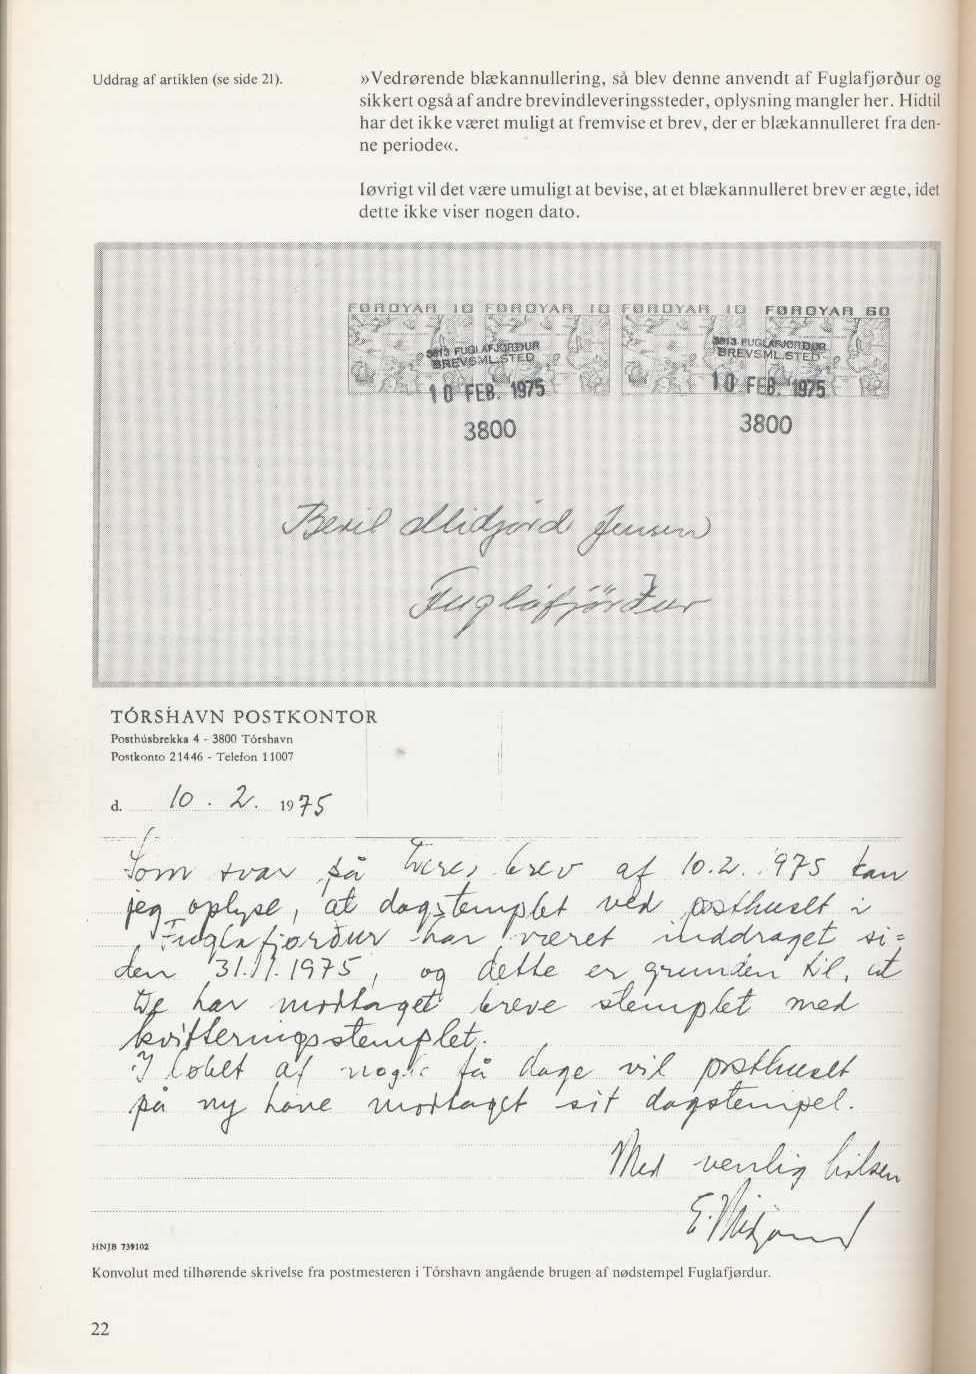 Uddrag af artiklen (se side 21).
»Vedrørende blækannullering, så blev denne anvendt af Fuglafjørður og
sikkert også af andre brevindleveringssteder, oplysning mangler her. Hidtil
har det ikke været muligt at fremvise et brev, der er blækannulleret fra den-
ne periode«.
Iøvrigt vil det være umuligt at bevise, at et blækannulleret brev er ægte, idet
dette ikke viser nogen dato.
FØROYAR 10 FØROYAR 10 FØROYAR 10 FØROYAR 60
3813 FUGLAFJØRÐUR
BREVSML.STED
10 FEB. 1975
3800
3813 FUGLAFJØRÐUR
BREVSML.STED
10 FEB. 1975
3800
Midjord Jensen
Fuglafjörður
TÓRSHAVN POSTKONTOR
Posthúsbrekka 4 - 3800 Tórshavn
Postkonto 21446 - Telefon 11007
d. 10 . 2. 1975
Som svar på Deres brev af 10.2. 1975 kan
jeg oplyse, at dagstemplet ved posthuset i
Fuglafjørður har været inddraget si=
den 31.11.1975, og dette er grunden til, at
De har modtaget breve stemplet med
kvitteringsstemplet.
I løbet af nogle få dage vil posthuset
på ny have modtaget sit dagstempel.
Med venlig hilsen
E. Midjord
HNJB 739102
Konvolut med tilhørende skrivelse fra postmesteren i Tórshavn angående brugen af nødstempel Fuglafjørdur.
22